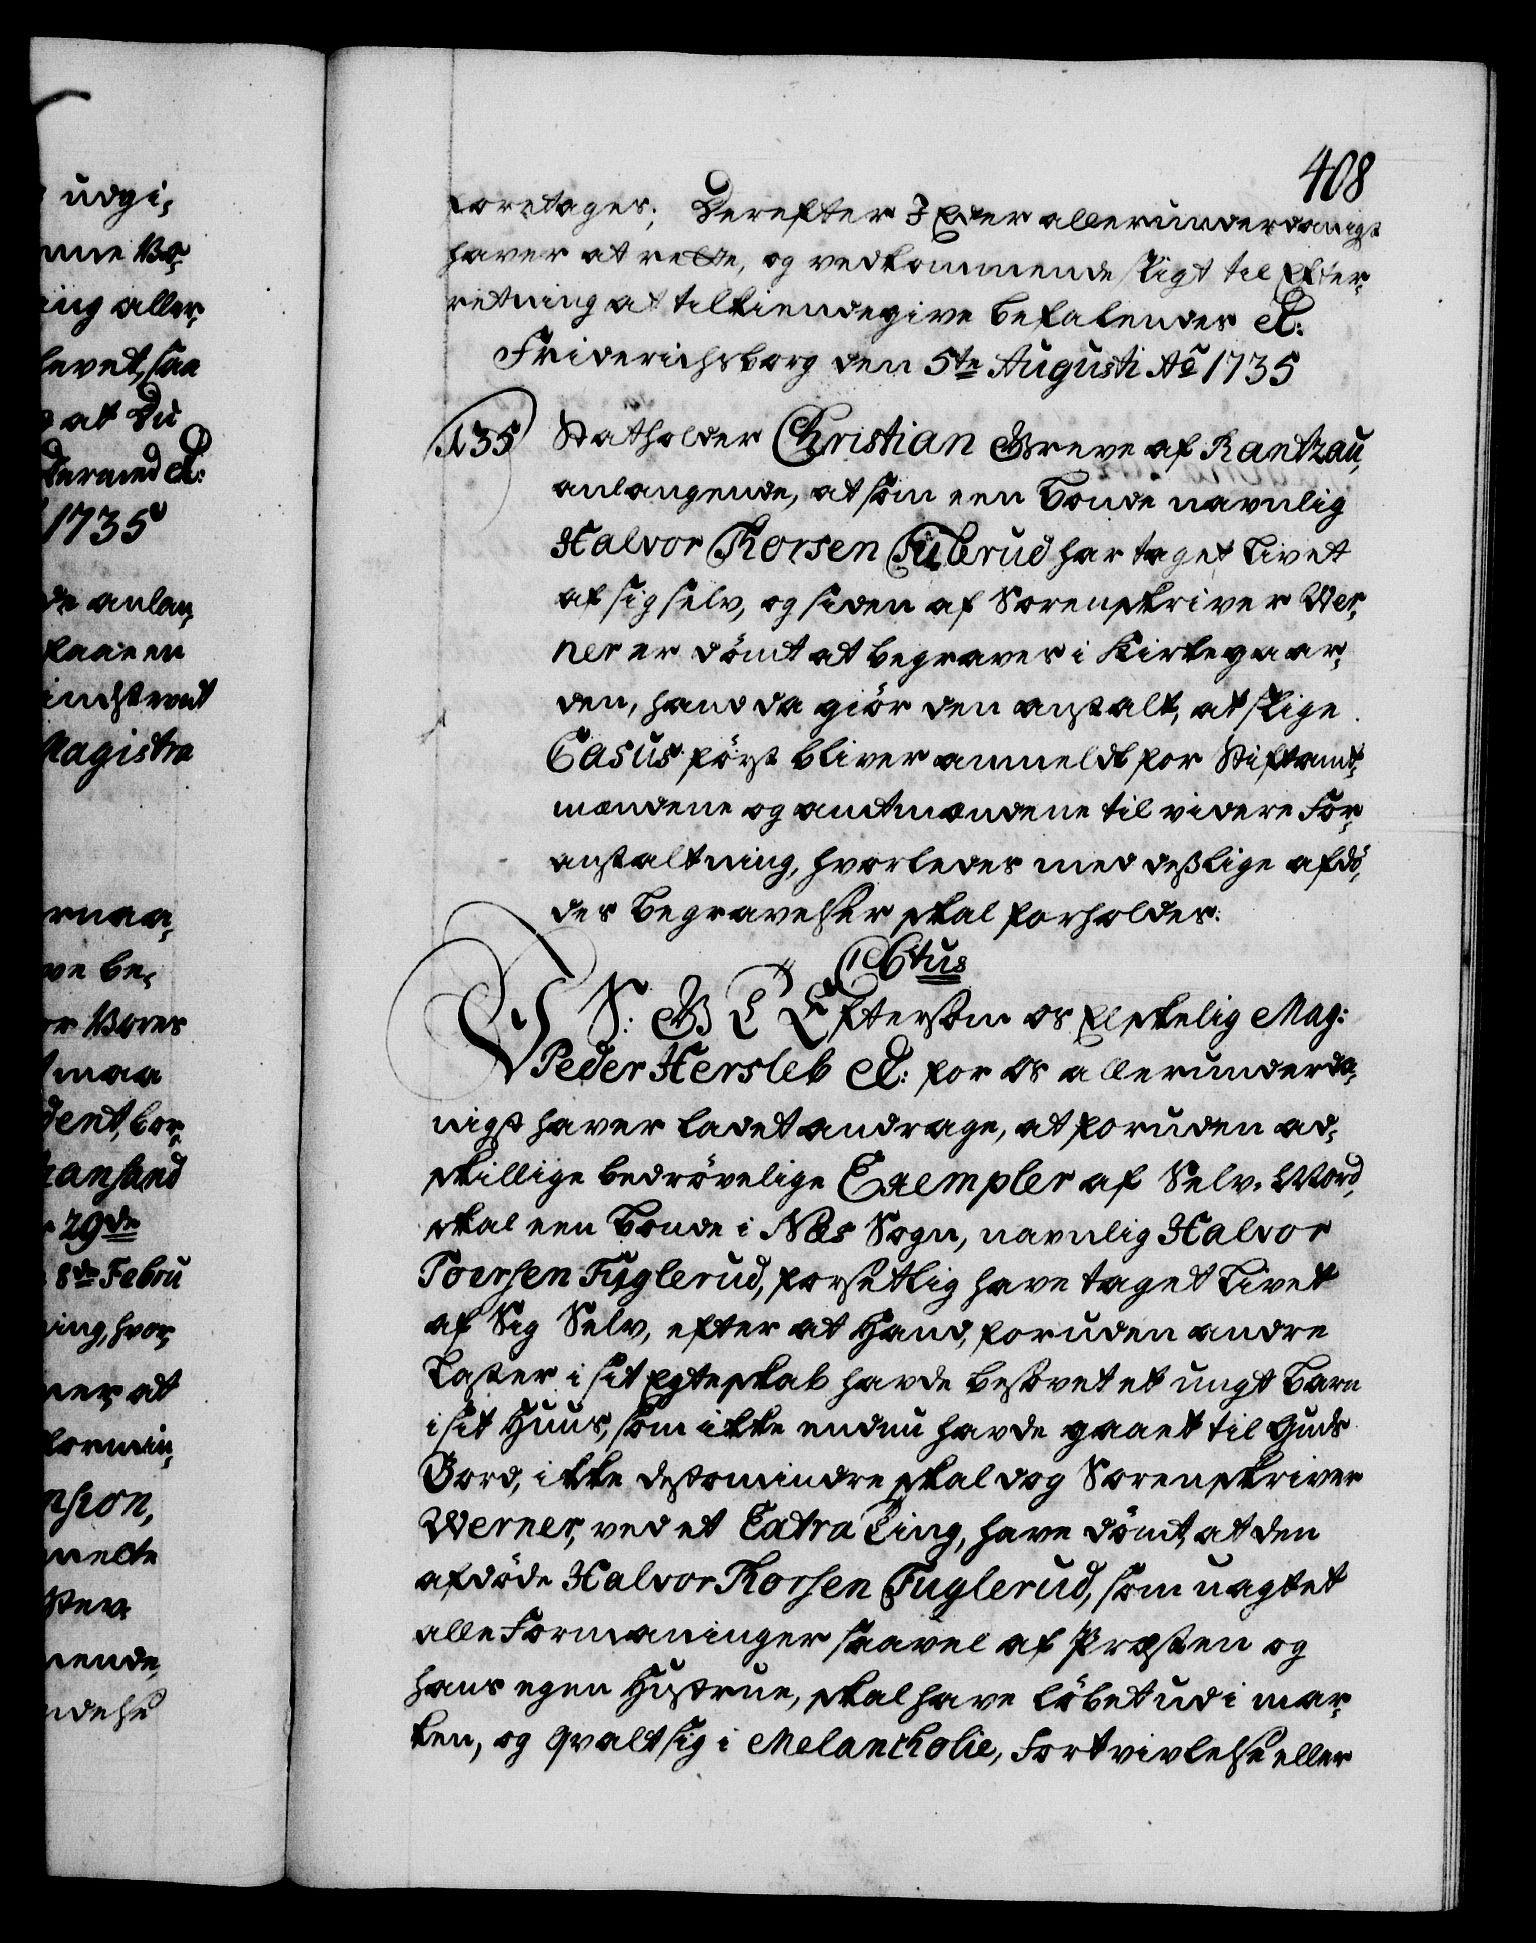 408
foretages; Derefter I Eder allerunderdanigst
haver at rette, og vedkommende sligt til Efter,
retning at tilkiendegive befalendes &:
Friderichsborg den 5te Augusti Aō 1735
135 Statholder Christian Greve af Rantzau,
anlangende, at som een Bonde navnlig
Halvor Thorsen Fulerud har taget Livet
af sig selv, og siden af Sorenskriver Wer,
ner er dömt at begraves i Kirkegaar,
den, hand da giör den anstalt, at slige
Casus först bliver anmeldt for Stiftamt,
mændene og amtmændene til videre For,
anstaltning, hvorledes med deslige afdö,
des Begravelser skal forholdes.
C 6tus
V S: G T Eftersom os Elskelig Mag:
Peder Hersleb &: for os allerunderda,
nigst haver ladet andrage, at foruden ad,
skillige bedrövelige Exempler af Selv-Mord,
skal een Bonde i Næs Sogn, navnlig Halvor
Toersen Fuglerud, forsetlig have taget Livet
af Sig Selv, efter at Hand, foruden andre
Laster i sit Egteskab havde besovet et ungt Barn
i sit Huus, som ikke endnu havde gaaet til Guds
Bord, ikke destomindre skal dog Sorenskriver
Werner, ved et Extra Ting, have dömt, at den
afdöde Halvor Thorsen Fuglerud, som uagtet
alle Formaninger saavel af Præsten og
hans egen Hustrue, skal have löbet ud i mar,
ken, og qvalt sig i Melancholie, Fortvivlelse eller